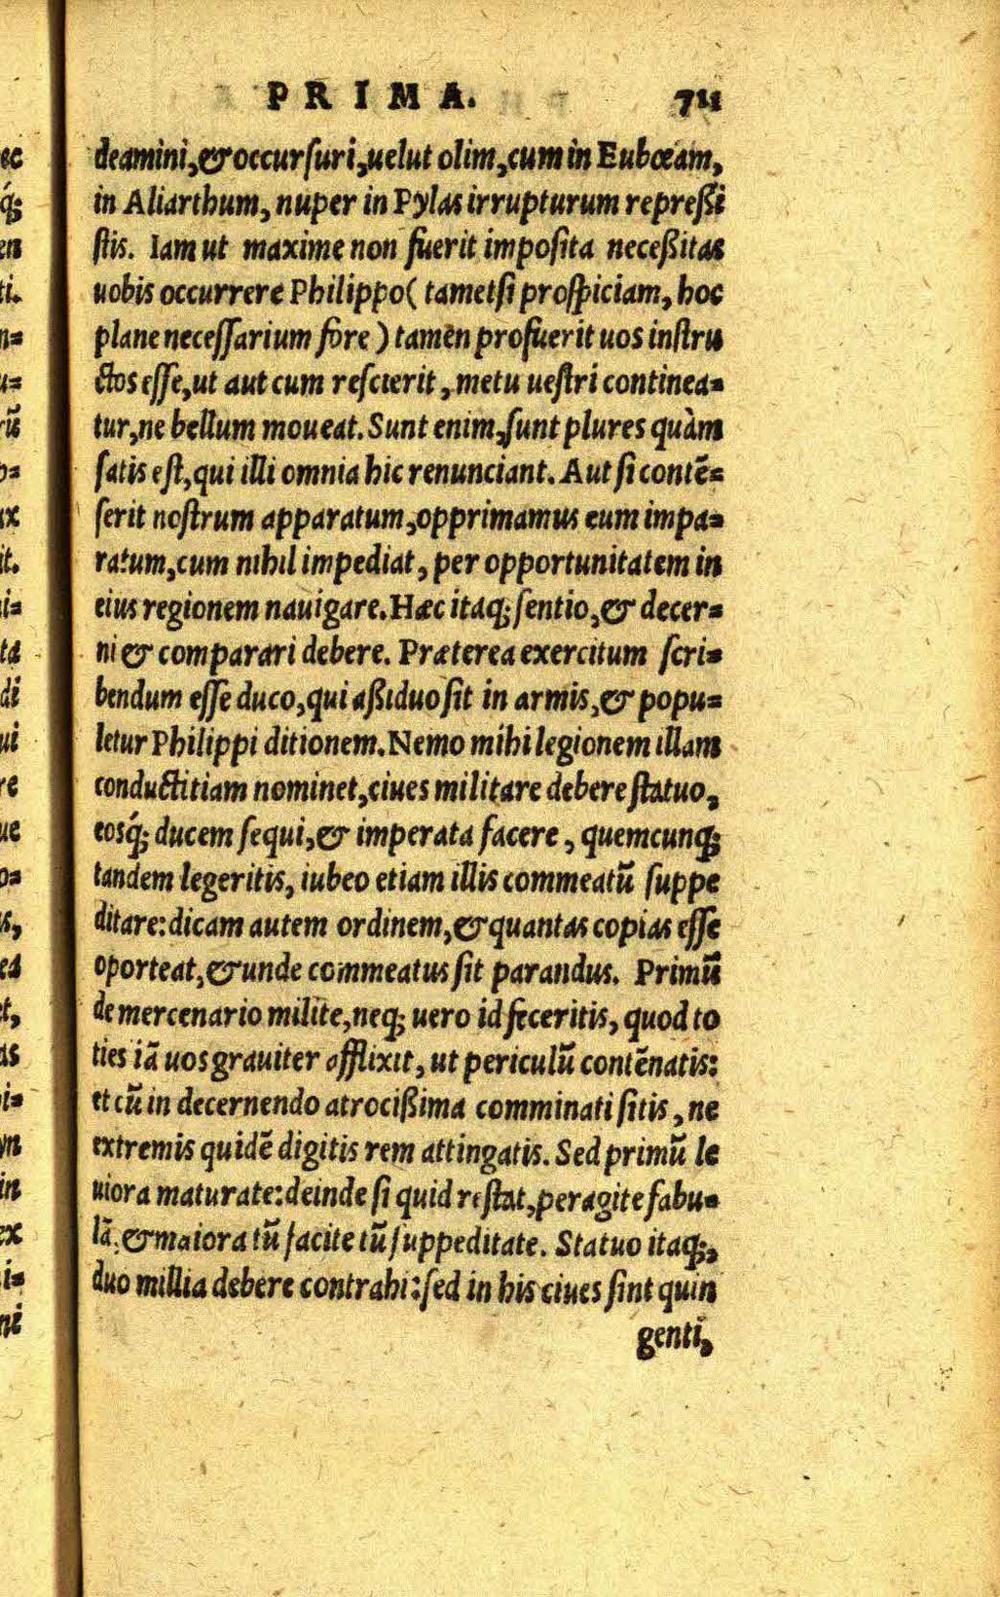 PRIMA. 711
deamini, & occursuri, uelut olim, cum in Eubœam,
in Aliarthum, nuper in Pylas irrupturum repreßi
stis. Iam ut maxime non fuerit imposita neceßitas
uobis occurrere Philippo ( tametsi prospiciam, hoc
plane necessarium fore ) tamen profuerit uos instru
ctos esse, ut aut cum rescierit, metu uestri continea=
tur, ne bellum moueat. Sunt enim, sunt plures quàm
satis est, qui illi omnia hic renunciant. Aut si contē=
serit nostrum apparatum, opprimamus eum impa=
ratum, cum nihil impediat, per opportunitatem in
eius regionem nauigare. Hæc itaq; sentio, & decer=
ni & comparari debere. Præterea exercitum scri=
bendum esse duco, qui aßiduo sit in armis, & popu=
letur Philippi ditionem. Nemo mihi legionem illam
conductitiam nominet, ciues militare debere statuo,
eosq́; ducem sequi, & imperata facere, quemcunq;
tandem legeritis, iubeo etiam illis commeatū suppe
ditare: dicam autem ordinem, & quantas copias esse
oporteat, & unde commeatus sit parandus. Primū
de mercenario milite, neq; uero id feceritis, quod to
ties iā uos grauiter afflixit, ut periculū contēnatis:
et cū in decernendo atrocißima comminati sitis, ne
extremis quidē digitis rem attingatis. Sed primū le
uiora maturate: deinde si quid restat, peragite fabu=
lā, & maiora tū facite tū suppeditate. Statuo itaq;,
duo millia debere contrahi: sed in his ciues sint quin
genti,